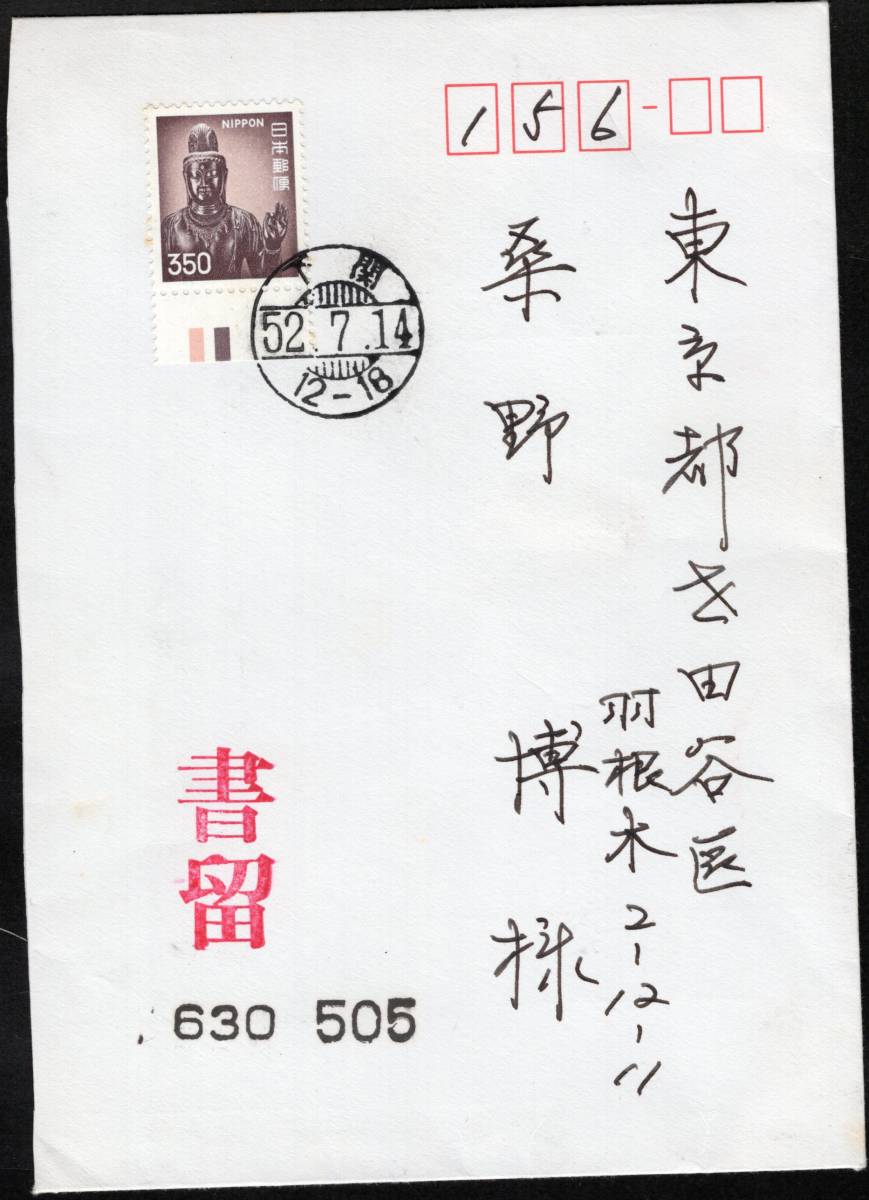 156-
東京都世田谷区
羽根木2-12-11
桑野 博 様
NIPPON
日本郵便
350
関
52.7.14
12-18
書留
630 505